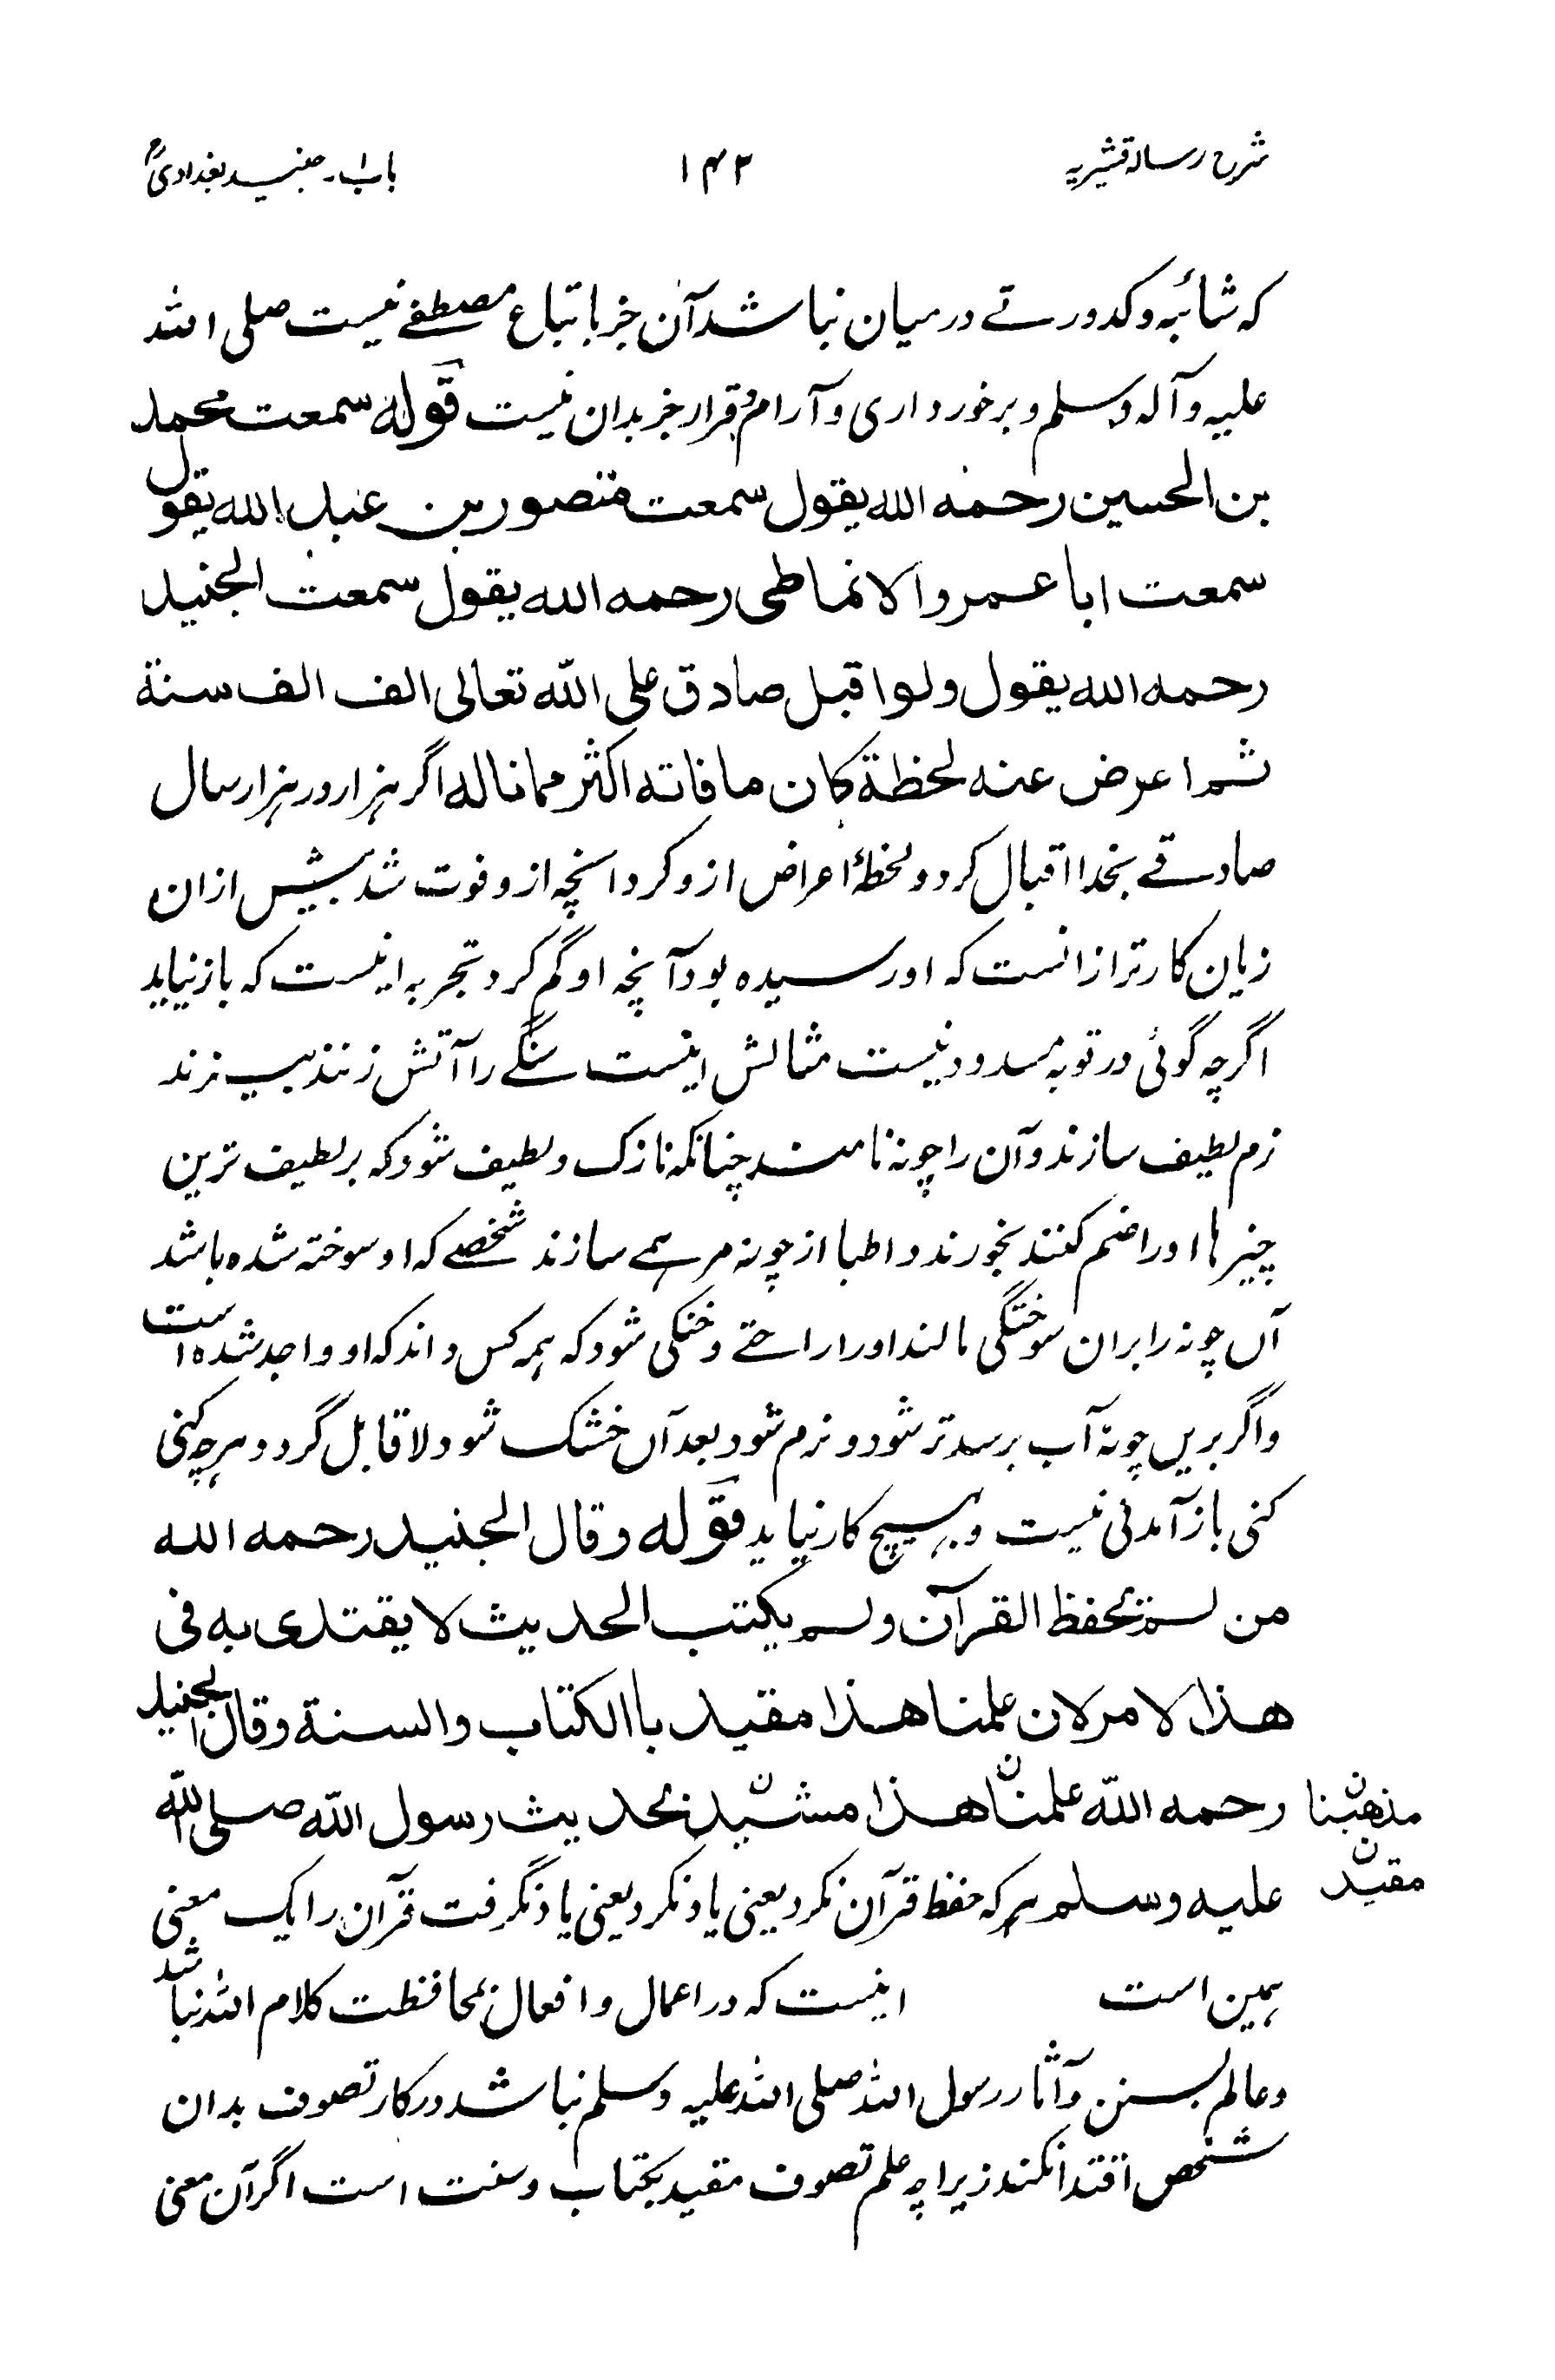 شرح رسالہ قشیریہ
۱۴۳
باب ۱۔ جنید بغدادیؒ
کہ شائبہ و کدورتے درمیان نباشد آن جز باتباع مصطفےٰ نیست صلی اللہ
علیہ و آلہ وسلم و برخورداری و آرام و قرار جز بدان نیست قوله سمعت محمد
بن الحسین رحمه الله یقول سمعت منصور بن عبد الله یقول
سمعت ابا عمرو الانماطی رحمه الله یقول سمعت الجنید
رحمه الله یقول ولو اقبل صادق علی الله تعالی الف الف سنة
ثم اعرض عنه لحظة کان ما فاته اکثر مما ناله اگر ہزار در ہزار سال
صادقے بخدا اقبال کرد و لحظۂ اعراض ازو کرد انچہ ازو فوت شد بیش ازان
زیان کارتر ازانست کہ او رسیدہ بود آنچہ او گم کرد تجربہ اینست کہ باز نیاید
اگرچہ گوئی در توبہ مسدود نیست مثالش اینست سنگے را آتش زنند بپزند
نرم لطیف سازند و آن را چونہ نامند چنانکہ نازک و لطیف شود کہ بر لطیف ترین
چیزہا او را ضم کنند بخورند و اطبا از چونہ مرہمے سازند شخصے کہ او سوختہ شدہ باشد
آں چونہ را بران سوختگی مالند او را راحتے و خنکی شود کہ ہمہ کس داند کہ او واجد شدہ است
و اگر بریں چونہ آب برسد تر شود و نرم شود بعد آں خشک شود لا قابل گردد و ہرچہ کنی
کنی باز آمدنی نیست و بہیچ کار نیاید قوله وقال الجنید رحمه الله
من لم یحفظ القرآن ولم یکتب الحدیث لا یقتدی به فی
هذا الامر لان علمنا هذا مقید باالکتاب والسنة وقال الجنید
رحمه الله علمنا ن هذا مشید ن بحدیث رسول الله صلی الله
مذهبنا ن
مقید ن
علیه وسلم ہرکہ حفظ قرآن نکرد یعنی یاد نکرد یعنی یاد نگرفت قرآن را یک معنی
ہمین است اینست کہ در اعمال و افعال بمحافظت کلام اللہ نباشد
و عالم بسنن و آثار رسول اللہ صلی اللہ علیہ وسلم نباشد در کار تصوف بدان
شخص اقتدا نکند زیراچہ علم تصوف مقید بکتاب و سنت است اگر آن معنی